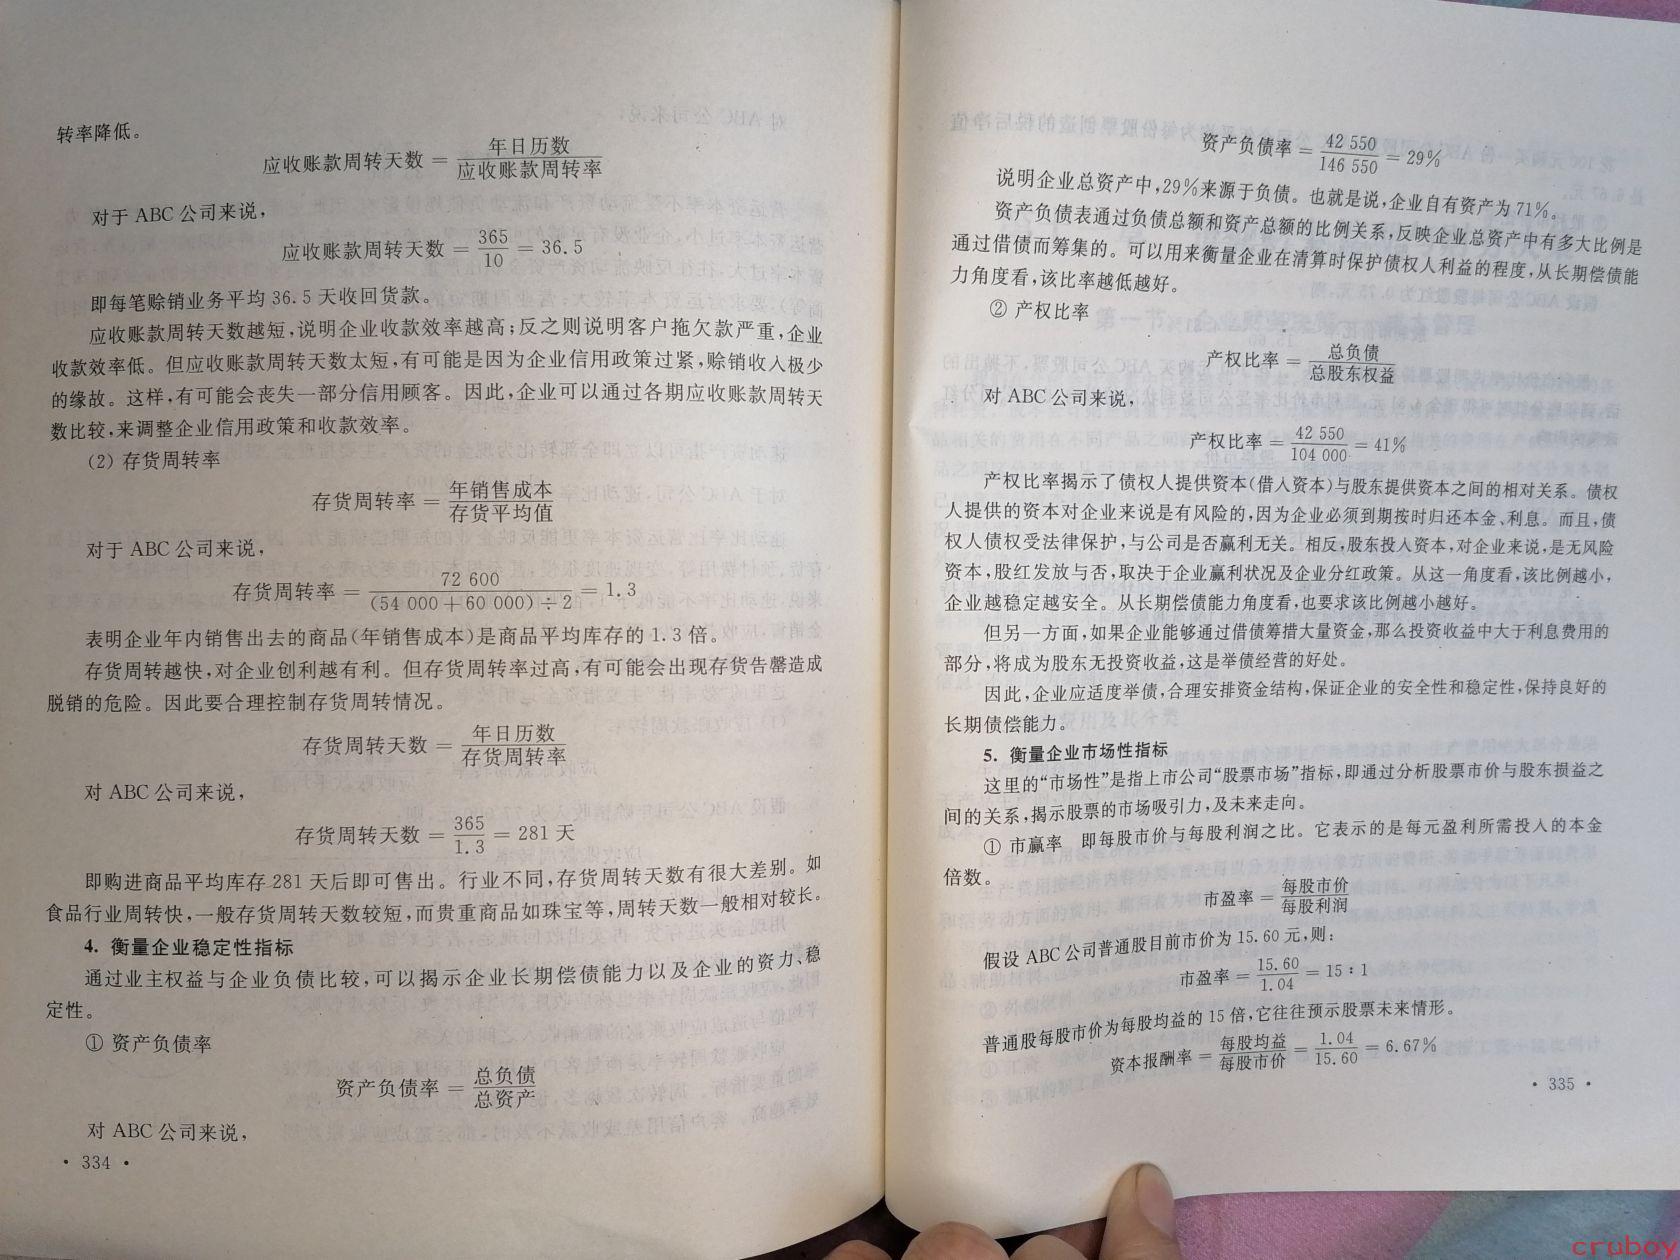 转率降低。
应收账款周转天数 = 年日历数 / 应收账款周转率
对于 ABC 公司来说,
应收账款周转天数 = 365 / 10 = 36.5
即每笔赊销业务平均 36.5 天收回货款。
应收账款周转天数越短,说明企业收款效率越高;反之则说明客户拖欠款严重,企业
收款效率低。但应收账款周转天数太短,有可能是因为企业信用政策过紧,赊销收入极少
的缘故。这样,有可能会丧失一部分信用顾客。因此,企业可以通过各期应收账款周转天
数比较,来调整企业信用政策和收款效率。
(2) 存货周转率
存货周转率 = 年销售成本 / 存货平均值
对于 ABC 公司来说,
存货周转率 = 72 600 / (54 000 + 60 000) ÷ 2 = 1.3
表明企业年内销售出去的商品(年销售成本)是商品平均库存的 1.3 倍。
存货周转越快,对企业创利越有利。但存货周转率过高,有可能会出现存货告罄造成
脱销的危险。因此要合理控制存货周转情况。
存货周转天数 = 年日历数 / 存货周转率
对 ABC 公司来说,
存货周转天数 = 365 / 1.3 = 281 天
即购进商品平均库存 281 天后即可售出。行业不同,存货周转天数有很大差别。如
食品行业周转快,一般存货周转天数较短,而贵重商品如珠宝等,周转天数一般相对较长。
4. 衡量企业稳定性指标
通过业主权益与企业负债比较,可以揭示企业长期偿债能力以及企业的资力、稳
定性。
① 资产负债率
资产负债率 = 总负债 / 总资产
对 ABC 公司来说,
· 334 ·
资产负债率 = 42 550 / 146 550 = 29%
说明企业总资产中,29%来源于负债。也就是说,企业自有资产为 71%。
资产负债表通过负债总额和资产总额的比例关系,反映企业总资产中有多大比例是
通过借债而筹集的。可以用来衡量企业在清算时保护债权人利益的程度,从长期偿债能
力角度看,该比率越低越好。
② 产权比率
产权比率 = 总负债 / 总股东权益
对 ABC 公司来说,
产权比率 = 42 550 / 104 000 = 41%
产权比率揭示了债权人提供资本(借入资本)与股东提供资本之间的相对关系。债权
人提供的资本对企业来说是有风险的,因为企业必须到期按时归还本金、利息。而且,债
权人债权受法律保护,与公司是否赢利无关。相反,股东投入资本,对企业来说,是无风险
资本,股红发放与否,取决于企业赢利状况及企业分红政策。从这一角度看,该比例越小,
企业越稳定越安全。从长期偿债能力角度看,也要求该比例越小越好。
但另一方面,如果企业能够通过借债筹措大量资金,那么投资收益中大于利息费用的
部分,将成为股东无投资收益,这是举债经营的好处。
因此,企业应适度举债,合理安排资金结构,保证企业的安全性和稳定性,保持良好的
长期债偿能力。
5. 衡量企业市场性指标
这里的“市场性”是指上市公司“股票市场”指标,即通过分析股票市价与股东损益之
间的关系,揭示股票的市场吸引力,及未来走向。
① 市赢率 即每股市价与每股利润之比。它表示的是每元盈利所需投入的本金
倍数。
市盈率 = 每股市价 / 每股利润
假设 ABC 公司普通股目前市价为 15.60 元,则:
市盈率 = 15.60 / 1.04 = 15 : 1
普通股每股市价为每股均益的 15 倍,它往往预示股票未来情形。
资本报酬率 = 每股均益 / 每股市价 = 1.04 / 15.60 = 6.67%
· 335 ·
cruboy